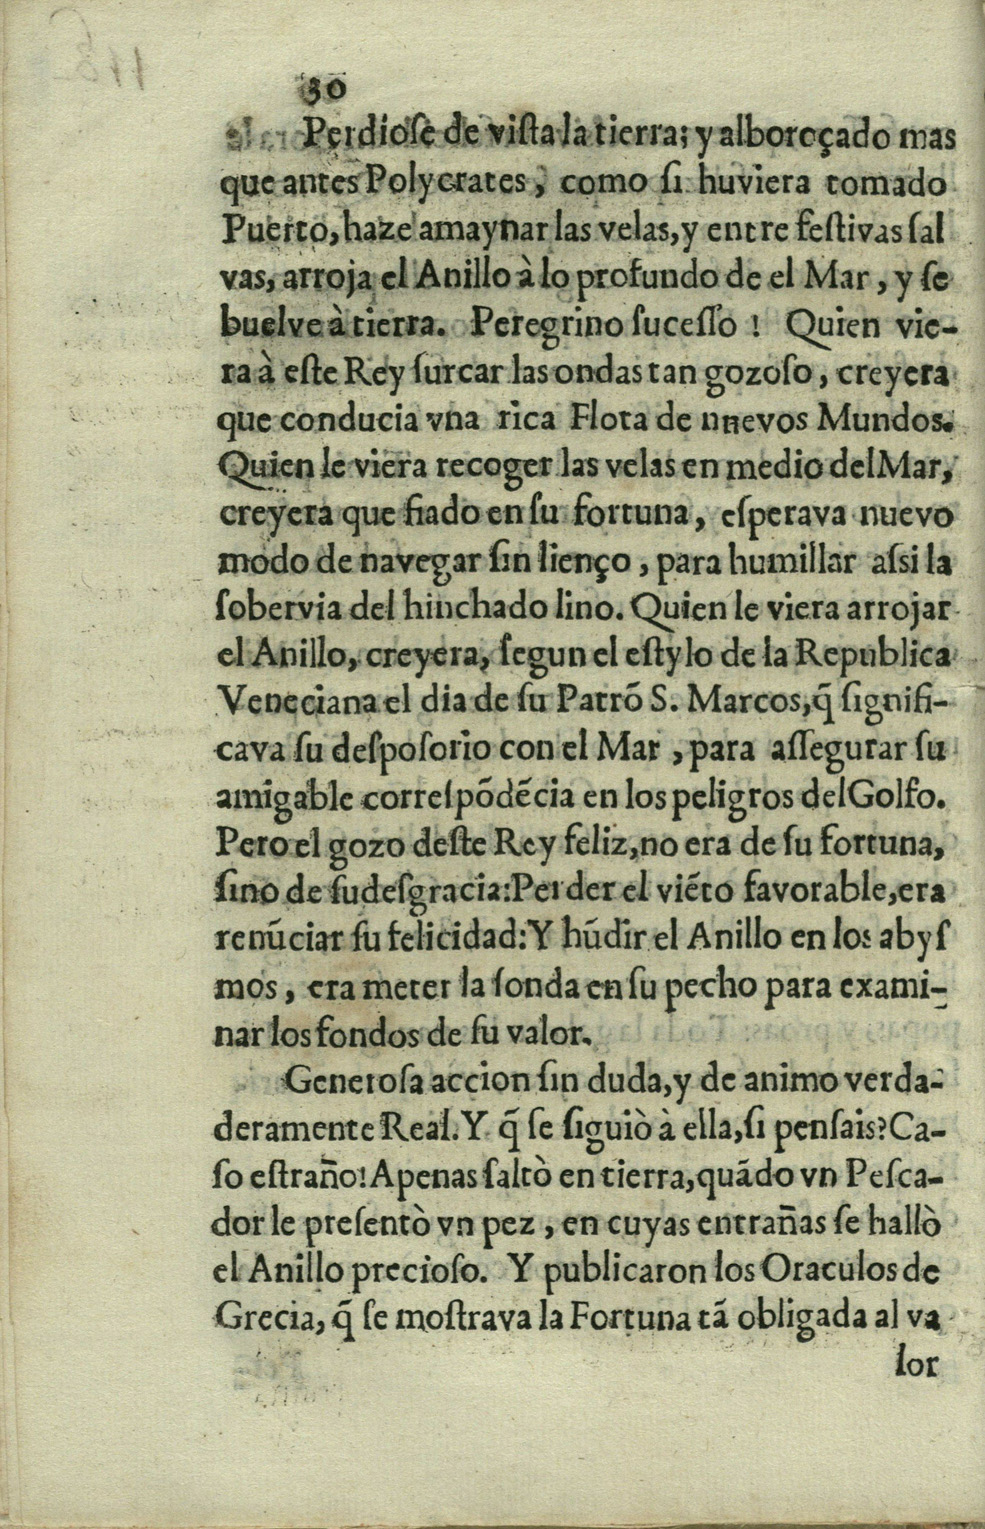 30
Perdiose de vista la tierra; y alboroçado mas
que antes Polycrates, como si huviera tomado
Puerto, haze amaynar las velas, y entre festivas sal
vas, arroja el Anillo à lo profundo de el Mar, y se
buelve à tierra. Peregrino sucesso! Quien vie-
ra à este Rey surcar las ondas tan gozoso, creyera
que conducia vna rica Flota de nnevos Mundos.
Quien le viera recoger las velas en medio del Mar,
creyera que fiado en su fortuna, esperava nuevo
modo de navegar sin lienço, para humillar assi la
sobervia del hinchado lino. Quien le viera arrojar
el Anillo, creyera, segun el estylo de la Republica
Veneciana el dia de su Patrõ S. Marcos, q̃ signifi-
cava su desposorio con el Mar, para assegurar su
amigable correspõdẽcia en los peligros del Golfo.
Pero el gozo deste Rey feliz, no era de su fortuna,
sino de su desgracia: Perder el viẽto favorable, era
renũciar su felicidad: Y hũdir el Anillo en los abys
mos, era meter la sonda en su pecho para exami-
nar los fondos de su valor.
Generosa accion sin duda, y de animo verda-
deramente Real. Y q̃ se siguiò à ella, si pensais? Ca-
so estraño! Apenas saltò en tierra, quãdo vn Pesca-
dor le presentò vn pez, en cuyas entrañas se hallò
el Anillo precioso. Y publicaron los Oraculos de
Grecia, q̃ se mostrava la Fortuna tã obligada al va
lor